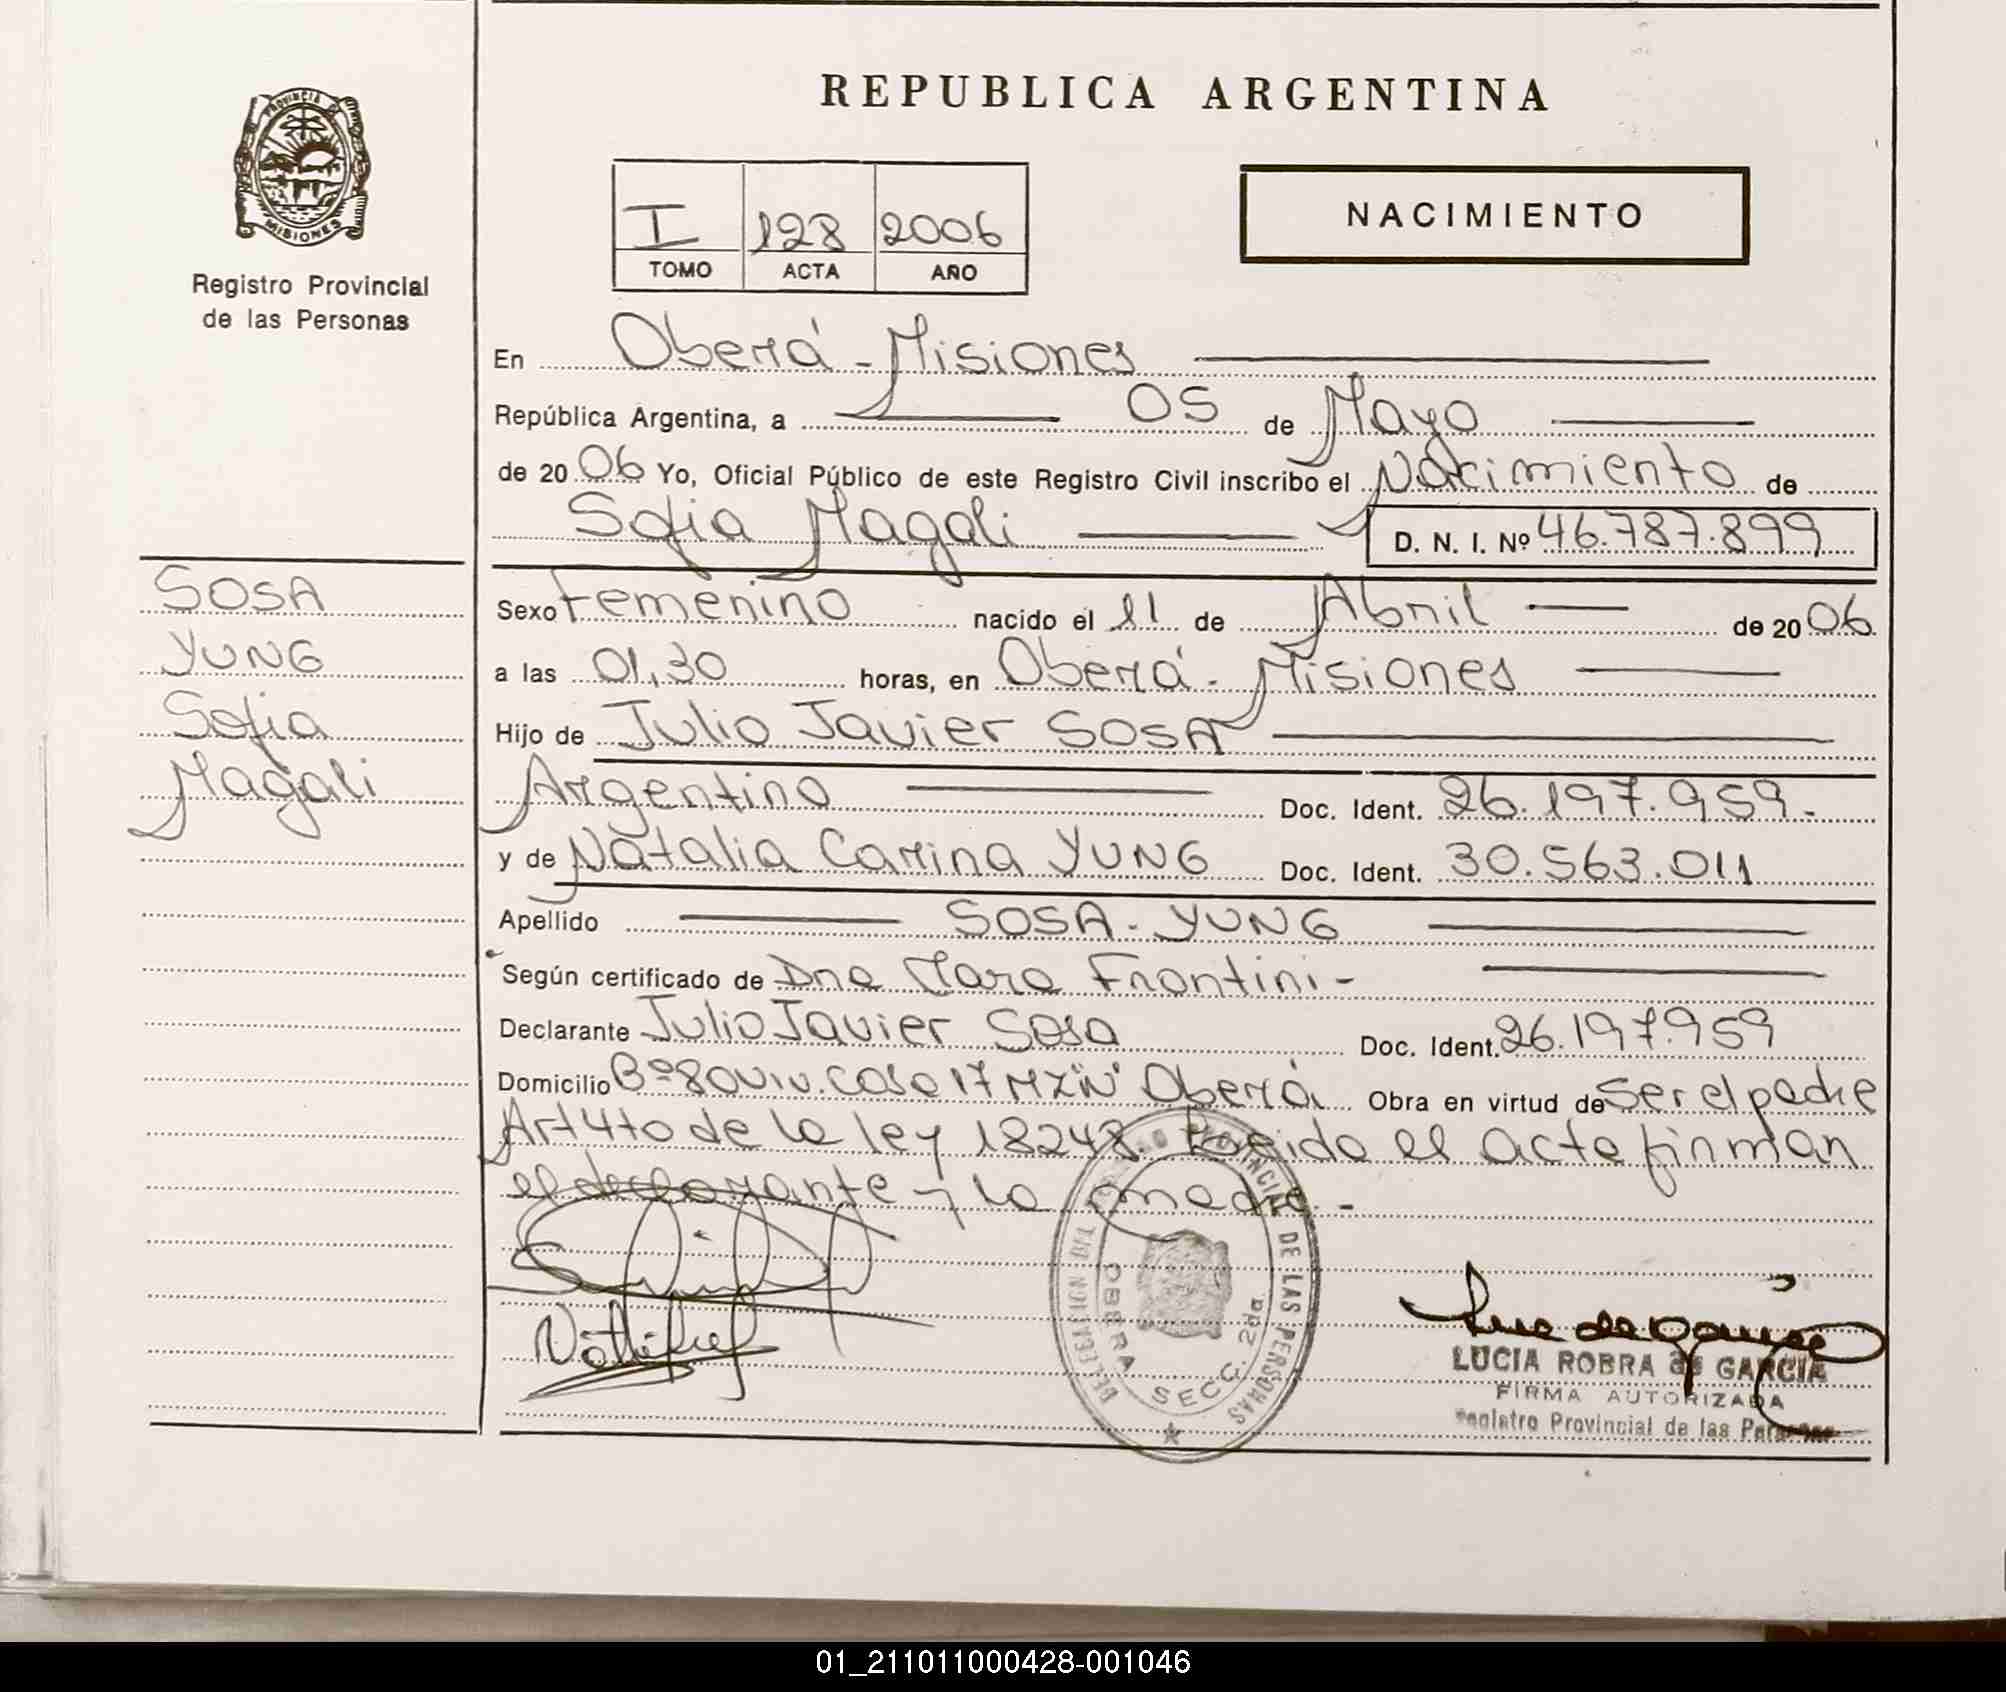 REPUBLICA ARGENTINA
PROVINCIA DE
MISIONES
Registro Provincial
de las Personas
I 128 2006
TOMO ACTA AÑO
NACIMIENTO
En Oberá - Misiones
República Argentina, a 05 de Mayo
de 2006 Yo, Oficial Público de este Registro Civil inscribo el Nacimiento de
Sofia Magali D. N. I. Nº 46.787.899
SOSA
YUNG
Sofia
Magali
Sexo Femenino nacido el 11 de Abril de 2006
a las 01,30 horas, en Oberá - Misiones
Hijo de Julio Javier SOSA
Argentino Doc. Ident. 26.197.959.-
y de Natalia Carina YUNG Doc. Ident. 30.563.011
Apellido SOSA - YUNG
Según certificado de Dra Clara Frontini -
Declarante Julio Javier Sosa Doc. Ident. 26.197.959
Domicilio Bº 80 viv. casa 17 Mz "N" Oberá Obra en virtud de ser el padre
Art 4to de la ley 18248. Leida el acta firman
el declarante y la madre. -
DELEGACION DEL REGISTRO PROVINCIAL DE LAS PERSONAS
OBERA SECC. 2da.
LUCIA ROBRA de GARCIA
FIRMA AUTORIZADA
Registro Provincial de las Personas
01_211011000428-001046